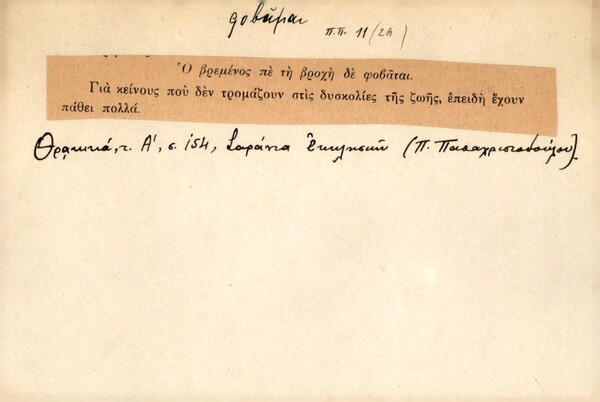 φοβᾶμαι π.π. 11 (2α)
Ὁ βρεμένος πὲ τὴ βροχὴ δὲ φοβᾶται.
Γιὰ κείνους ποὺ δὲν τρομάζουν στὶς δυσκολίες τῆς ζωῆς, ἐπειδὴ ἔχουν
πάθει πολλά.
Θρᾳκικά, τ. Α', σ. 154, Σαράντα Ἐκκλησιῶν (Π. Παπαχριστοδούλου).